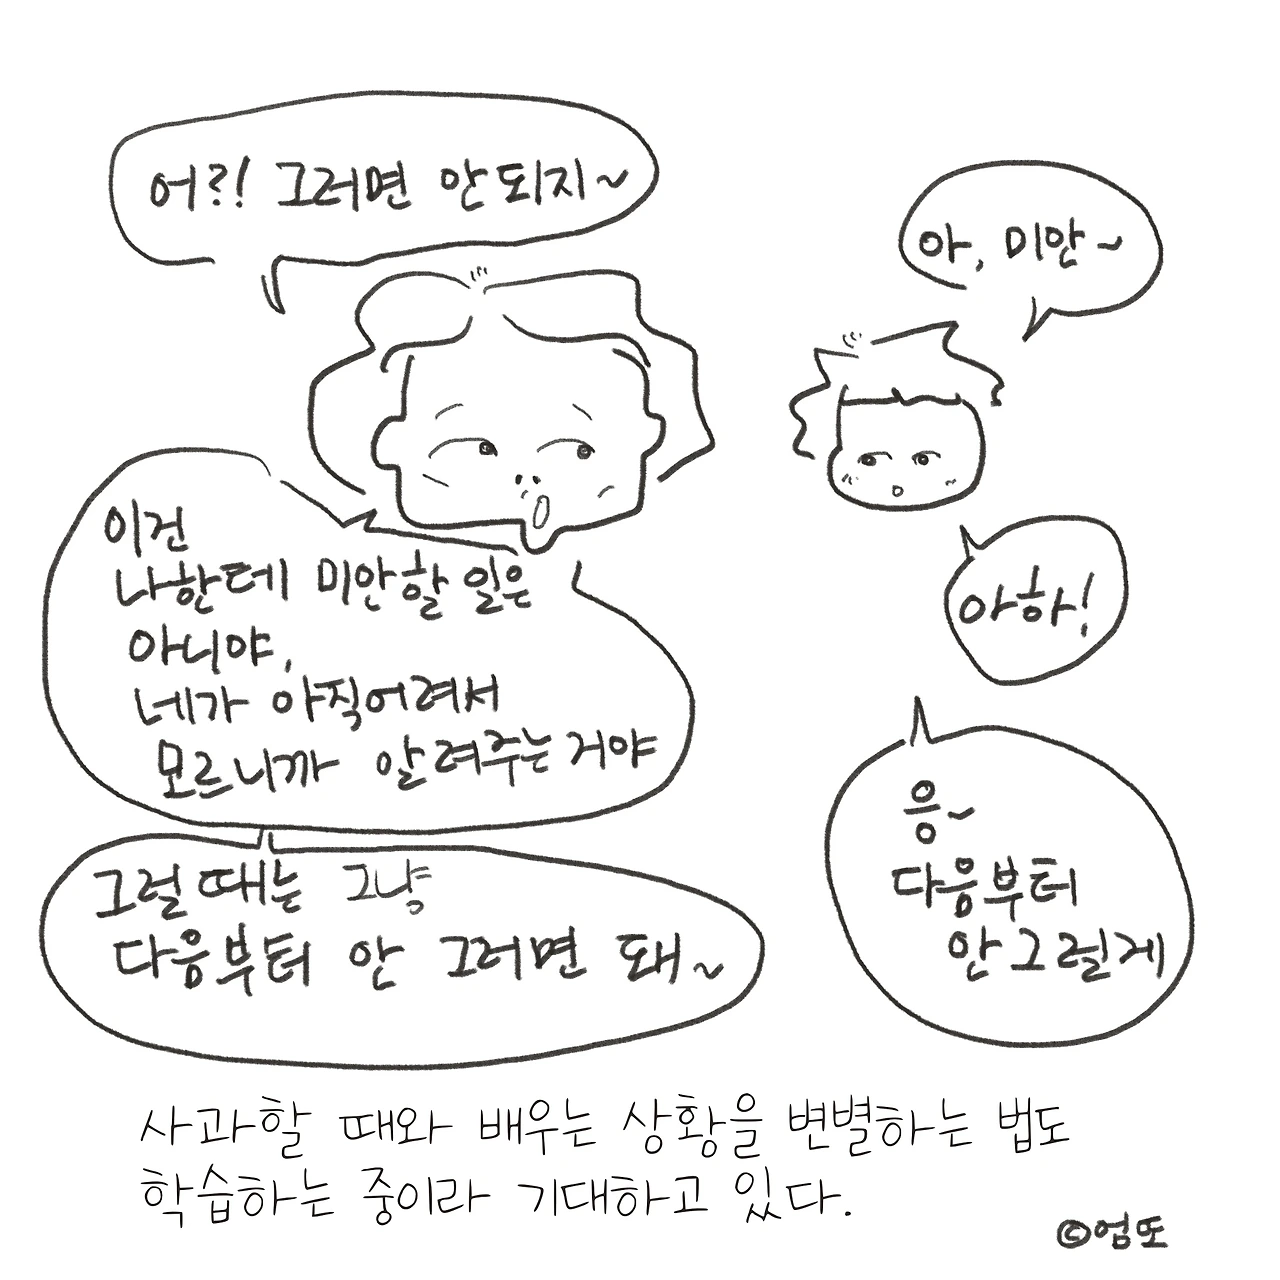 어?! 그러면 안되지~
아, 미안~
이건
나한테 미안할 일은
아니야,
네가 아직어려서
모르니까 알려주는거야
아하!
그럴때는 그냥
다음부터 안 그러면 돼~
응~
다음부터
안그럴게
사과할 때와 배우는 상황을 변별하는 법도
학습하는 중이라 기대하고 있다.
©엄또